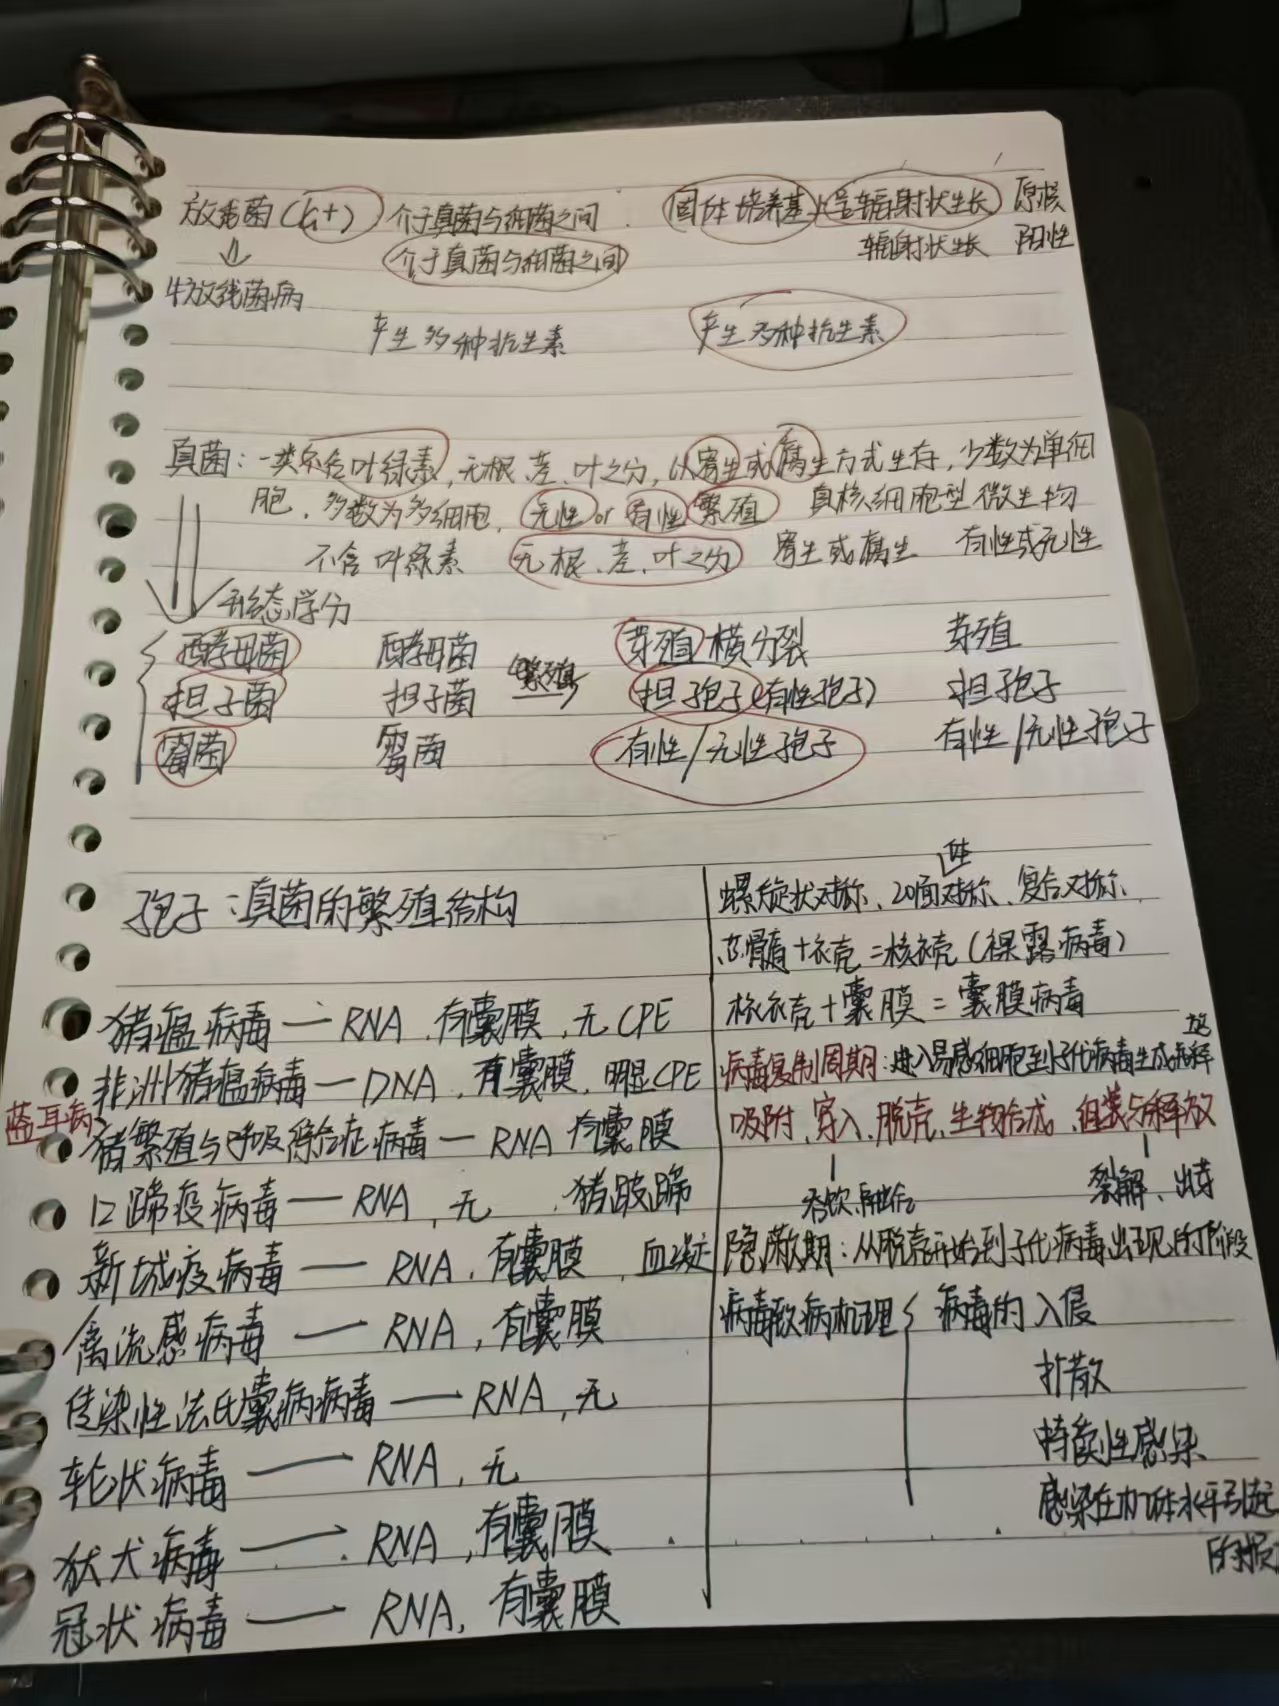 放线菌(G+) 介于真菌与细菌之间 固体培养基上呈辐射状生长 原核
介于真菌与细菌之间 辐射状生长 阳性
牛放线菌病
产生多种抗生素 产生多种抗生素
真菌：一类不含叶绿素，无根、茎、叶之分，以寄生或腐生方式生存，少数为单细
胞，多数为多细胞，无性or有性繁殖 真核细胞型微生物
不含叶绿素 无根、茎、叶之分 寄生或腐生 有性或无性
形态学分
酵母菌 酵母菌 芽殖 横分裂 芽殖
担子菌 担子菌 繁殖 担孢子(有性孢子) 担孢子
霉菌 霉菌 有性/无性孢子 有性/无性孢子
孢子：真菌的繁殖结构
猪瘟病毒—RNA，有囊膜，无CPE
非洲猪瘟病毒—DNA，有囊膜，明显CPE
蓝耳病
猪繁殖与呼吸综合征病毒—RNA 有囊膜
口蹄疫病毒—RNA，无 猪跛蹄
新城疫病毒—RNA，有囊膜，血凝
禽流感病毒—RNA，有囊膜
传染性法氏囊病病毒—RNA，无
轮状病毒—RNA，无
狂犬病毒—RNA，有囊膜
冠状病毒—RNA，有囊膜
体
螺旋状对称、20面对称、复合对称
芯髓+衣壳=核衣壳(裸露病毒)
核衣壳+囊膜=囊膜病毒
病毒复制周期：进入易感细胞到子代病毒生成释
放
吸附、穿入、脱壳、生物合成、组装与释放
吞饮、融合 裂解、出芽
隐蔽期：从脱壳开始到子代病毒出现的阶段
病毒致病机理 病毒的入侵
扩散
持续性感染
感染在机体水平引起
的损